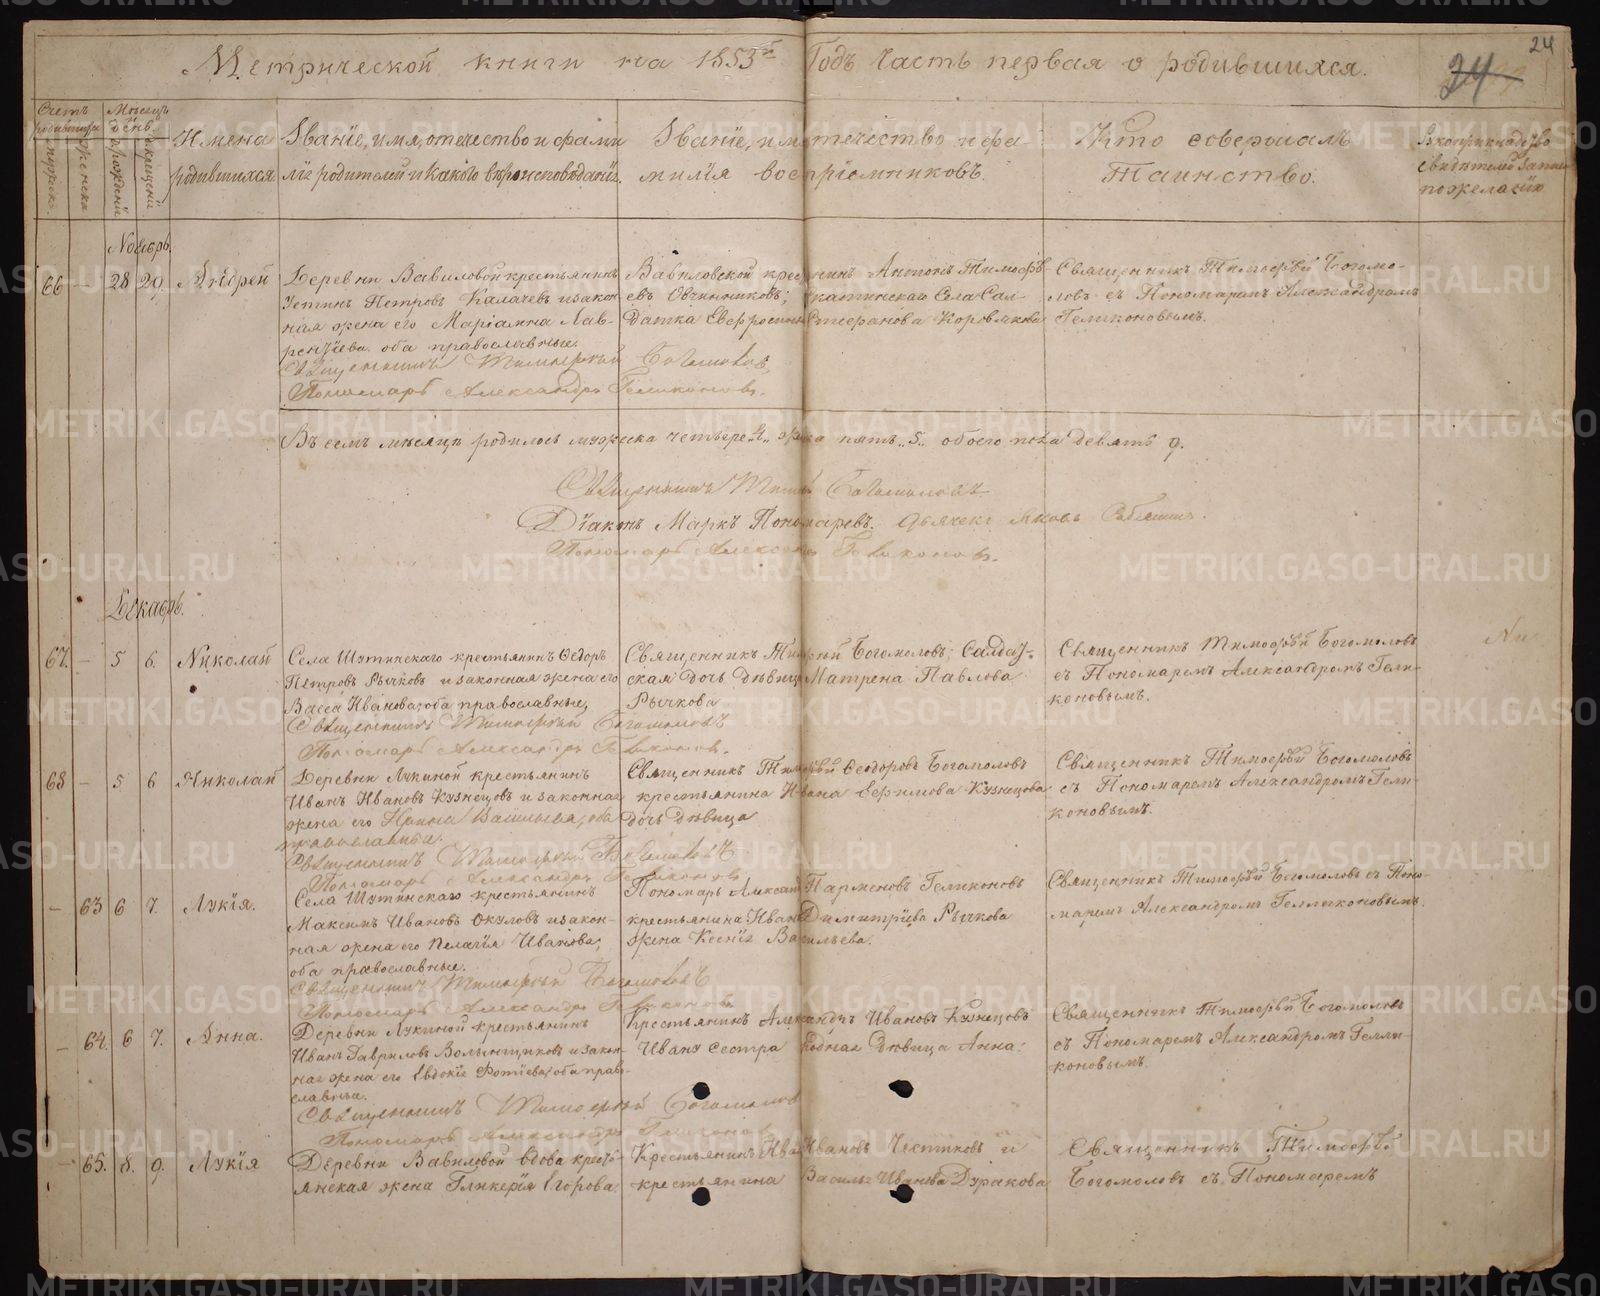 24
Метрической книги на 1853й Годъ Часть первая о родившихся.
24
Счетъ родившихся
мужеска.
женска
Мѣсяцъ день
рожденія
крещенія
Имена родившихся
Званіе, имя, отечество и фами
лія родителей и какого вѣроисповѣданія.
Званіе, имя отечество и фа
милія воспріемниковъ.
Кто совершалъ
Таинство.
по желанію
Ноябрь.
66 — 28 29. Андрей
Деревни Вавиловой крестьянинъ
Устинъ Петровъ Калачевъ и закон
ная жена его Маріамна Лав-
рентіева. оба православные.
Вавиловской крестьянинъ Антонъ Тимофѣ-
евъ Овчинниковъ;
Села Сал-
датка Евфросинья Стефанова Коровякова
Священникъ Тимофѣй Богомо-
ловъ съ Пономаремъ Александромъ
Геликоновымъ.
Священникъ Тимофей Богомоловъ,
Пономарь Александръ Геликоновъ.
Въ семъ мѣсяцѣ родилось мужеска четыре „4„ женска пять „5„ обоего пола девять 9.
Священникъ Тимофей Богомоловъ
Діаконъ Маркъ Пономаревъ. Дьячекъ Яковъ
Пономарь Александръ Геликоновъ.
Декабрь.
67. — 5 6. Николай
Села Шутинскаго крестьянинъ Ѳедоръ
Петровъ Рычковъ и законная жена его
Васса Иванова, оба православные,
Священникъ Тимофѣй Богомоловъ; Салдат-
ская дочь дѣвица Матрена Павлова
Рычкова
Священникъ Тимофѣй Богомоловъ
съ Пономаремъ Александромъ Гели-
коновымъ.
Священникъ Тимофей Богомоловъ
Пономарь Александръ Геликоновъ.
68 — 5 6 Николай
Деревни Лукиной крестьянинъ
Иванъ Ивановъ Кузнецовъ и законная
жена его Ирина Васильева, оба
православные.
Священникъ Тимофѣй Ѳеодоровъ Богомоловъ
крестьянина Ивана Ефимова Кузнецова
дочь дѣвица
Священникъ Тимофѣй Богомоловъ
съ Пономаремъ Александромъ Гели-
коновымъ.
Священникъ Тимофей Богомоловъ
Пономарь Александръ Геликоновъ
— 63 6 7. Лукія.
Села Шутинскаго крестьянинъ
Максимъ Ивановъ Окуловъ и закон-
ная жена его Пелагія Иванова,
оба православные.
Пономарь Александръ Парменовъ Геликоновъ
крестьянина Ивана Димитріева Рычкова
жена Ксенія Васильева.
Священникъ Тимофѣй Богомоловъ съ Поно-
маремъ Александромъ Гелликоновымъ.
Священникъ Тимофей Богомоловъ
Пономарь Александръ Геликоновъ
— 64. 6 7. Анна.
Деревни Лукиной крестьянинъ
Иванъ Гавриловъ Волынщиковъ и закон-
ная жена его Евдокія Фотіева, оба право-
славные.
Крестьянинъ Александръ Ивановъ Кузнецовъ
Ивану сестра родная дѣвица Анна:
Священникъ Тимофѣй Богомоловъ
съ Пономаремъ Александромъ Гелли-
коновымъ.
Священникъ Тимофей Богомоловъ
Пономарь Александръ Геликоновъ
— 65. 8. 9. Лукія
Деревни Вавиловой вдова кресть-
янская жена Гликерія Егорова
Крестьянинъ Иванъ Ивановъ Чистяковъ и
крестьянина Василья Иванова Дуракова
Священникъ Тимофѣй
Богомоловъ съ Пономаремъ
METRIKI.GASO-URAL.RU